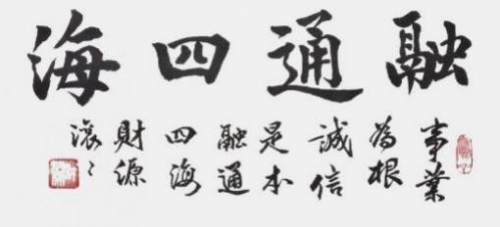 融通四海
事業
為根
誠信
是本
融通
四海
財源
滚〻